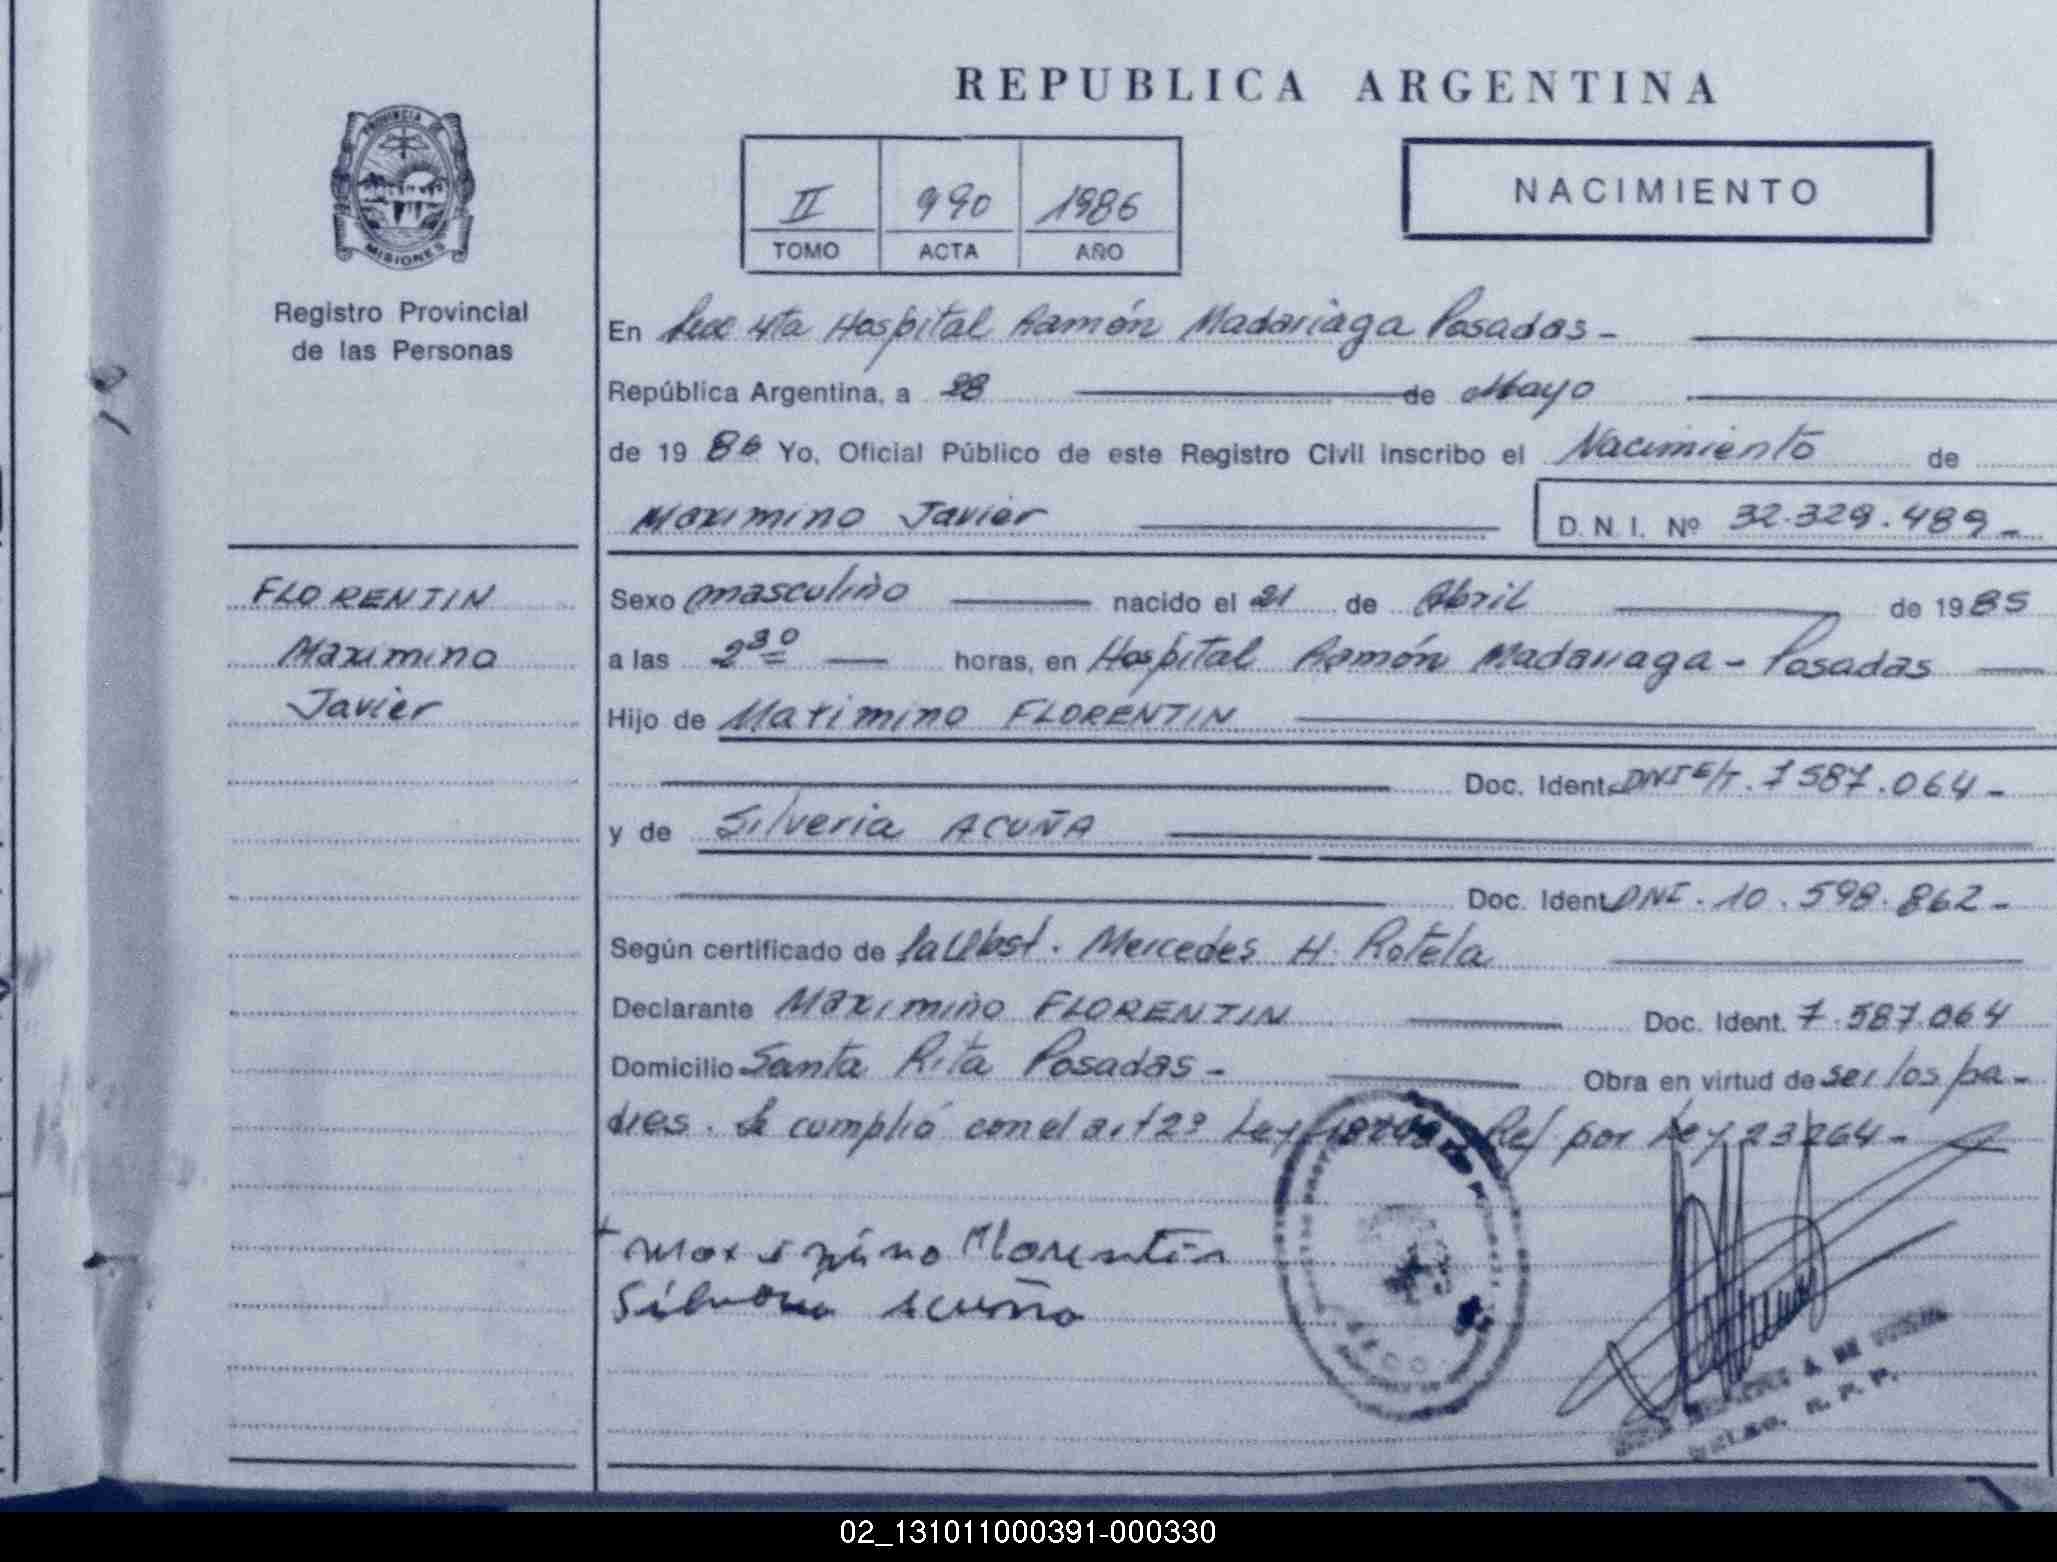 REPUBLICA ARGENTINA
PROVINCIA DE
MISIONES
Registro Provincial
de las Personas
II 990 1986
TOMO ACTA AÑO
NACIMIENTO
En Secc 4ta Hospital Ramón Madariaga Posadas-
República Argentina, a 28 de Mayo
de 1986 Yo, Oficial Público de este Registro Civil inscribo el Nacimiento de
Maximino Javier D. N. I. Nº 32.329.489-
FLORENTIN
Maximino
Javier
Sexo masculino nacido el 21 de Abril de 1985
a las 2 30 horas, en Hospital Ramón Madariaga - Posadas
Hijo de Maximino FLORENTIN
Doc. Ident. DNI E/T. 7587.064-
y de Silveria ACUÑA
Doc. Ident. DNI. 10.598.862-
Según certificado de la Obst. Mercedes H. Rotela
Declarante Maximino FLORENTIN Doc. Ident. 7.587.064
Domicilio Santa Rita Posadas- Obra en virtud de ser los pa-
dres. Se cumplió con el art 2º Ley Ref por Ley 23264-
Maximino Florentin
Silveria Acuña
R. P. P.
02_131011000391-000330